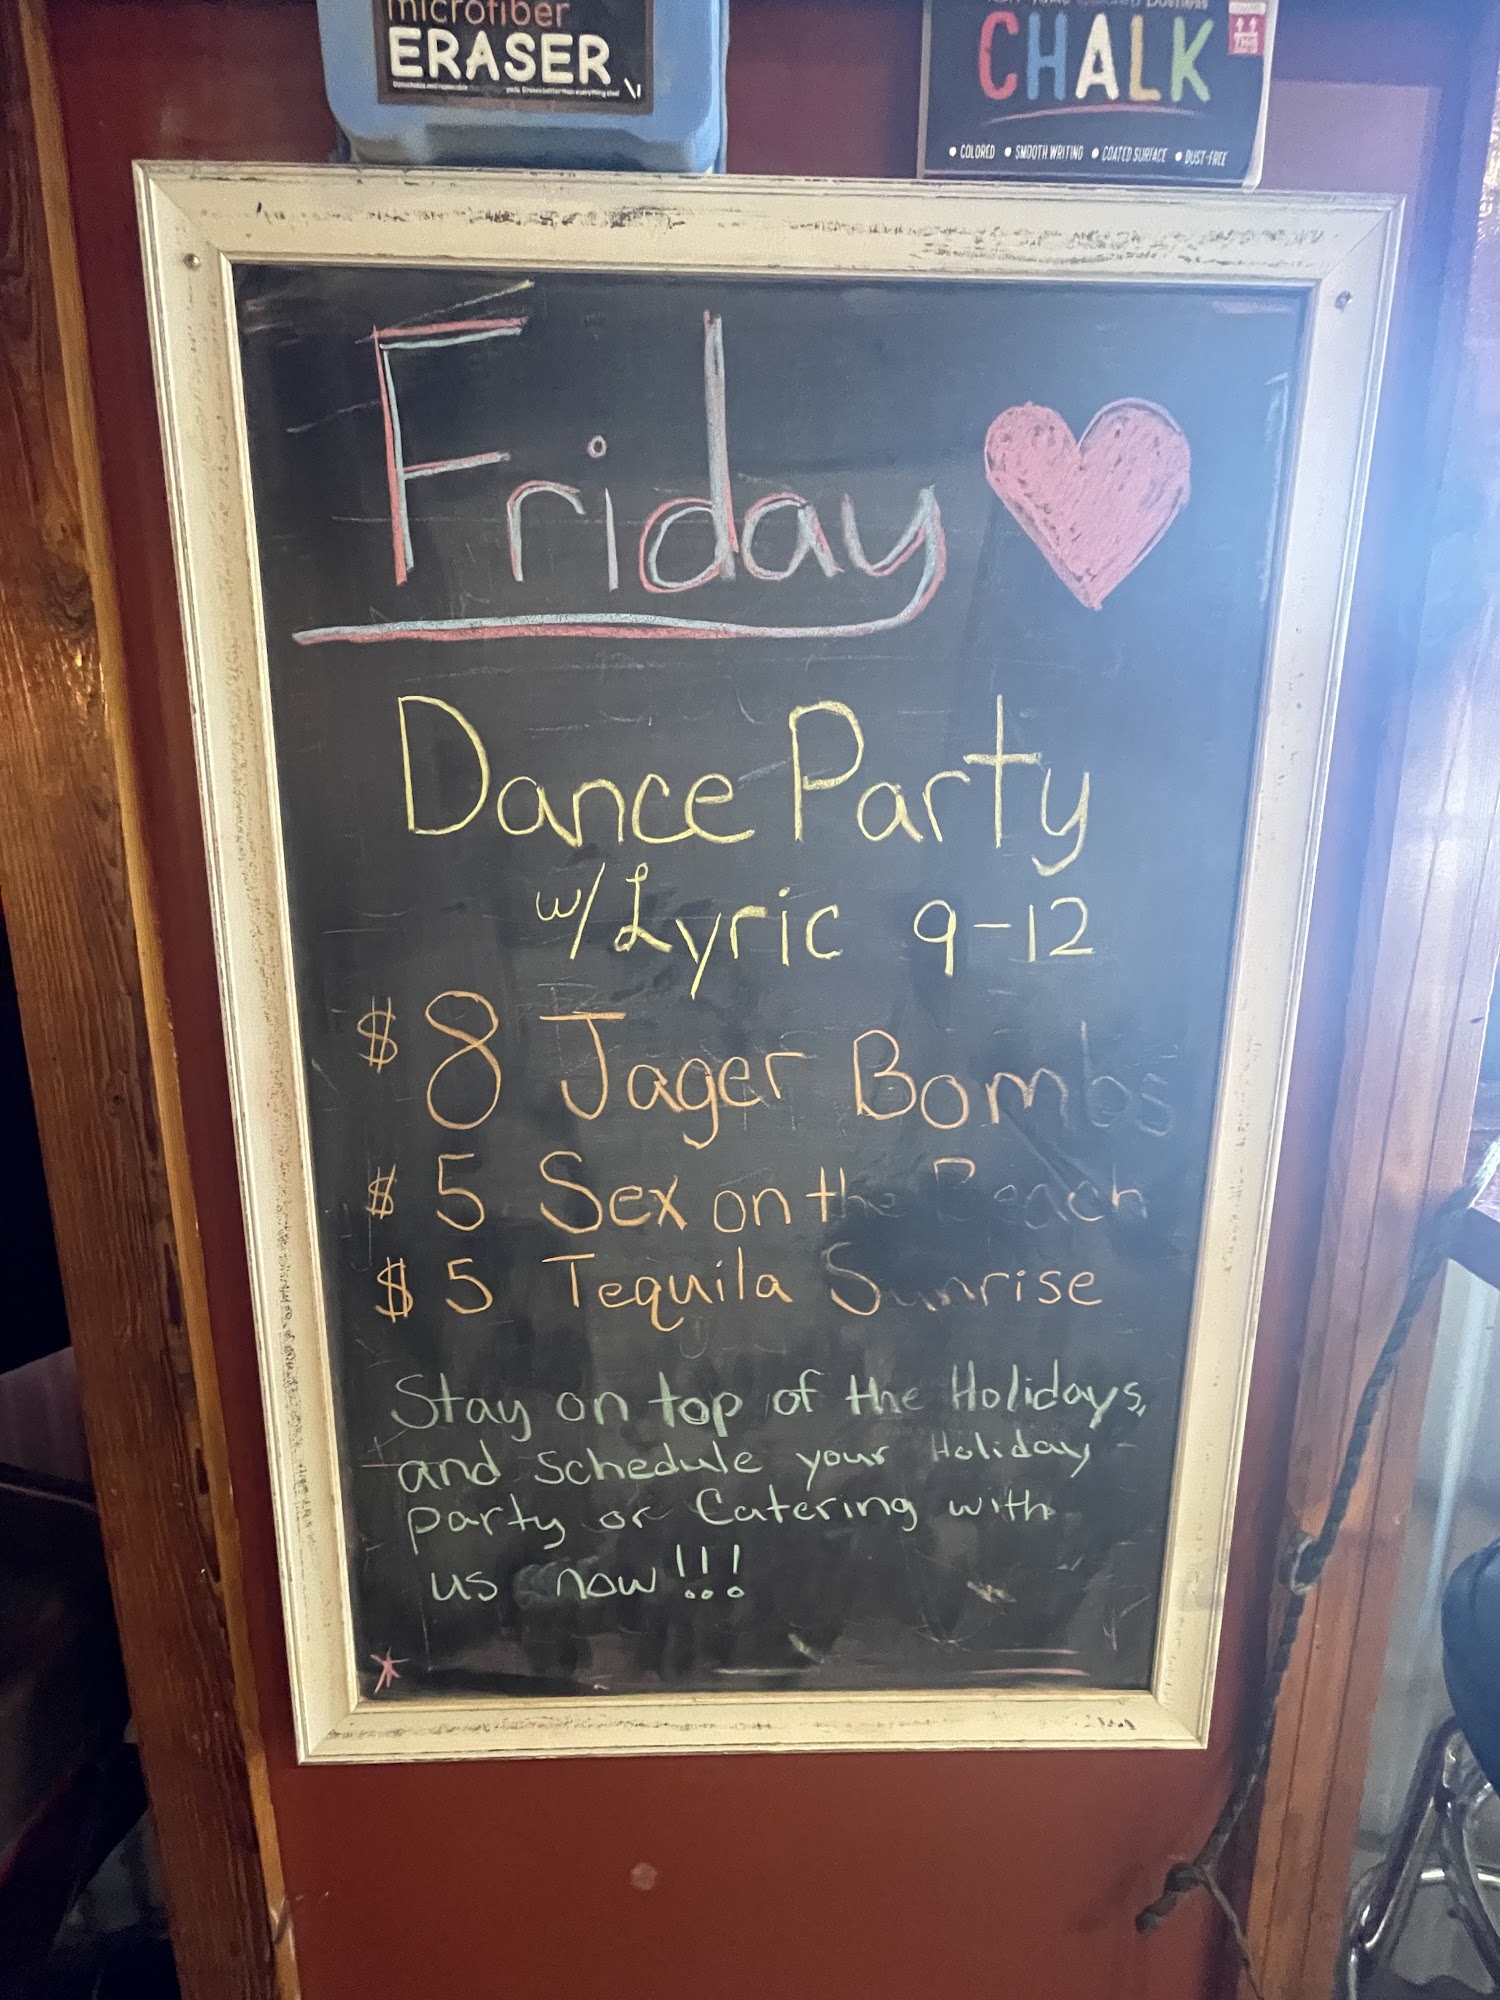 microfiber
ERASER
CHALK
• COLORED • SMOOTH WRITING • COATED SURFACE • DUST-FREE
Friday
Dance Party
w/ Lyric 9-12
$8 Jager Bombs
$5 Sex on the Beach
$5 Tequila Sunrise
Stay on top of the Holidays,
and schedule your Holiday
party or Catering with
us now!!!